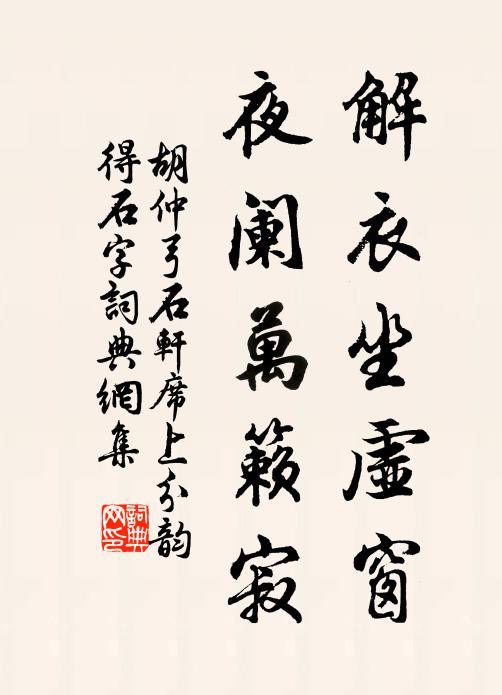 解衣坐虛窗
夜阑萬籟寂
胡仲弓石軒席上分韵
得石字詞典網集
詞典
网印